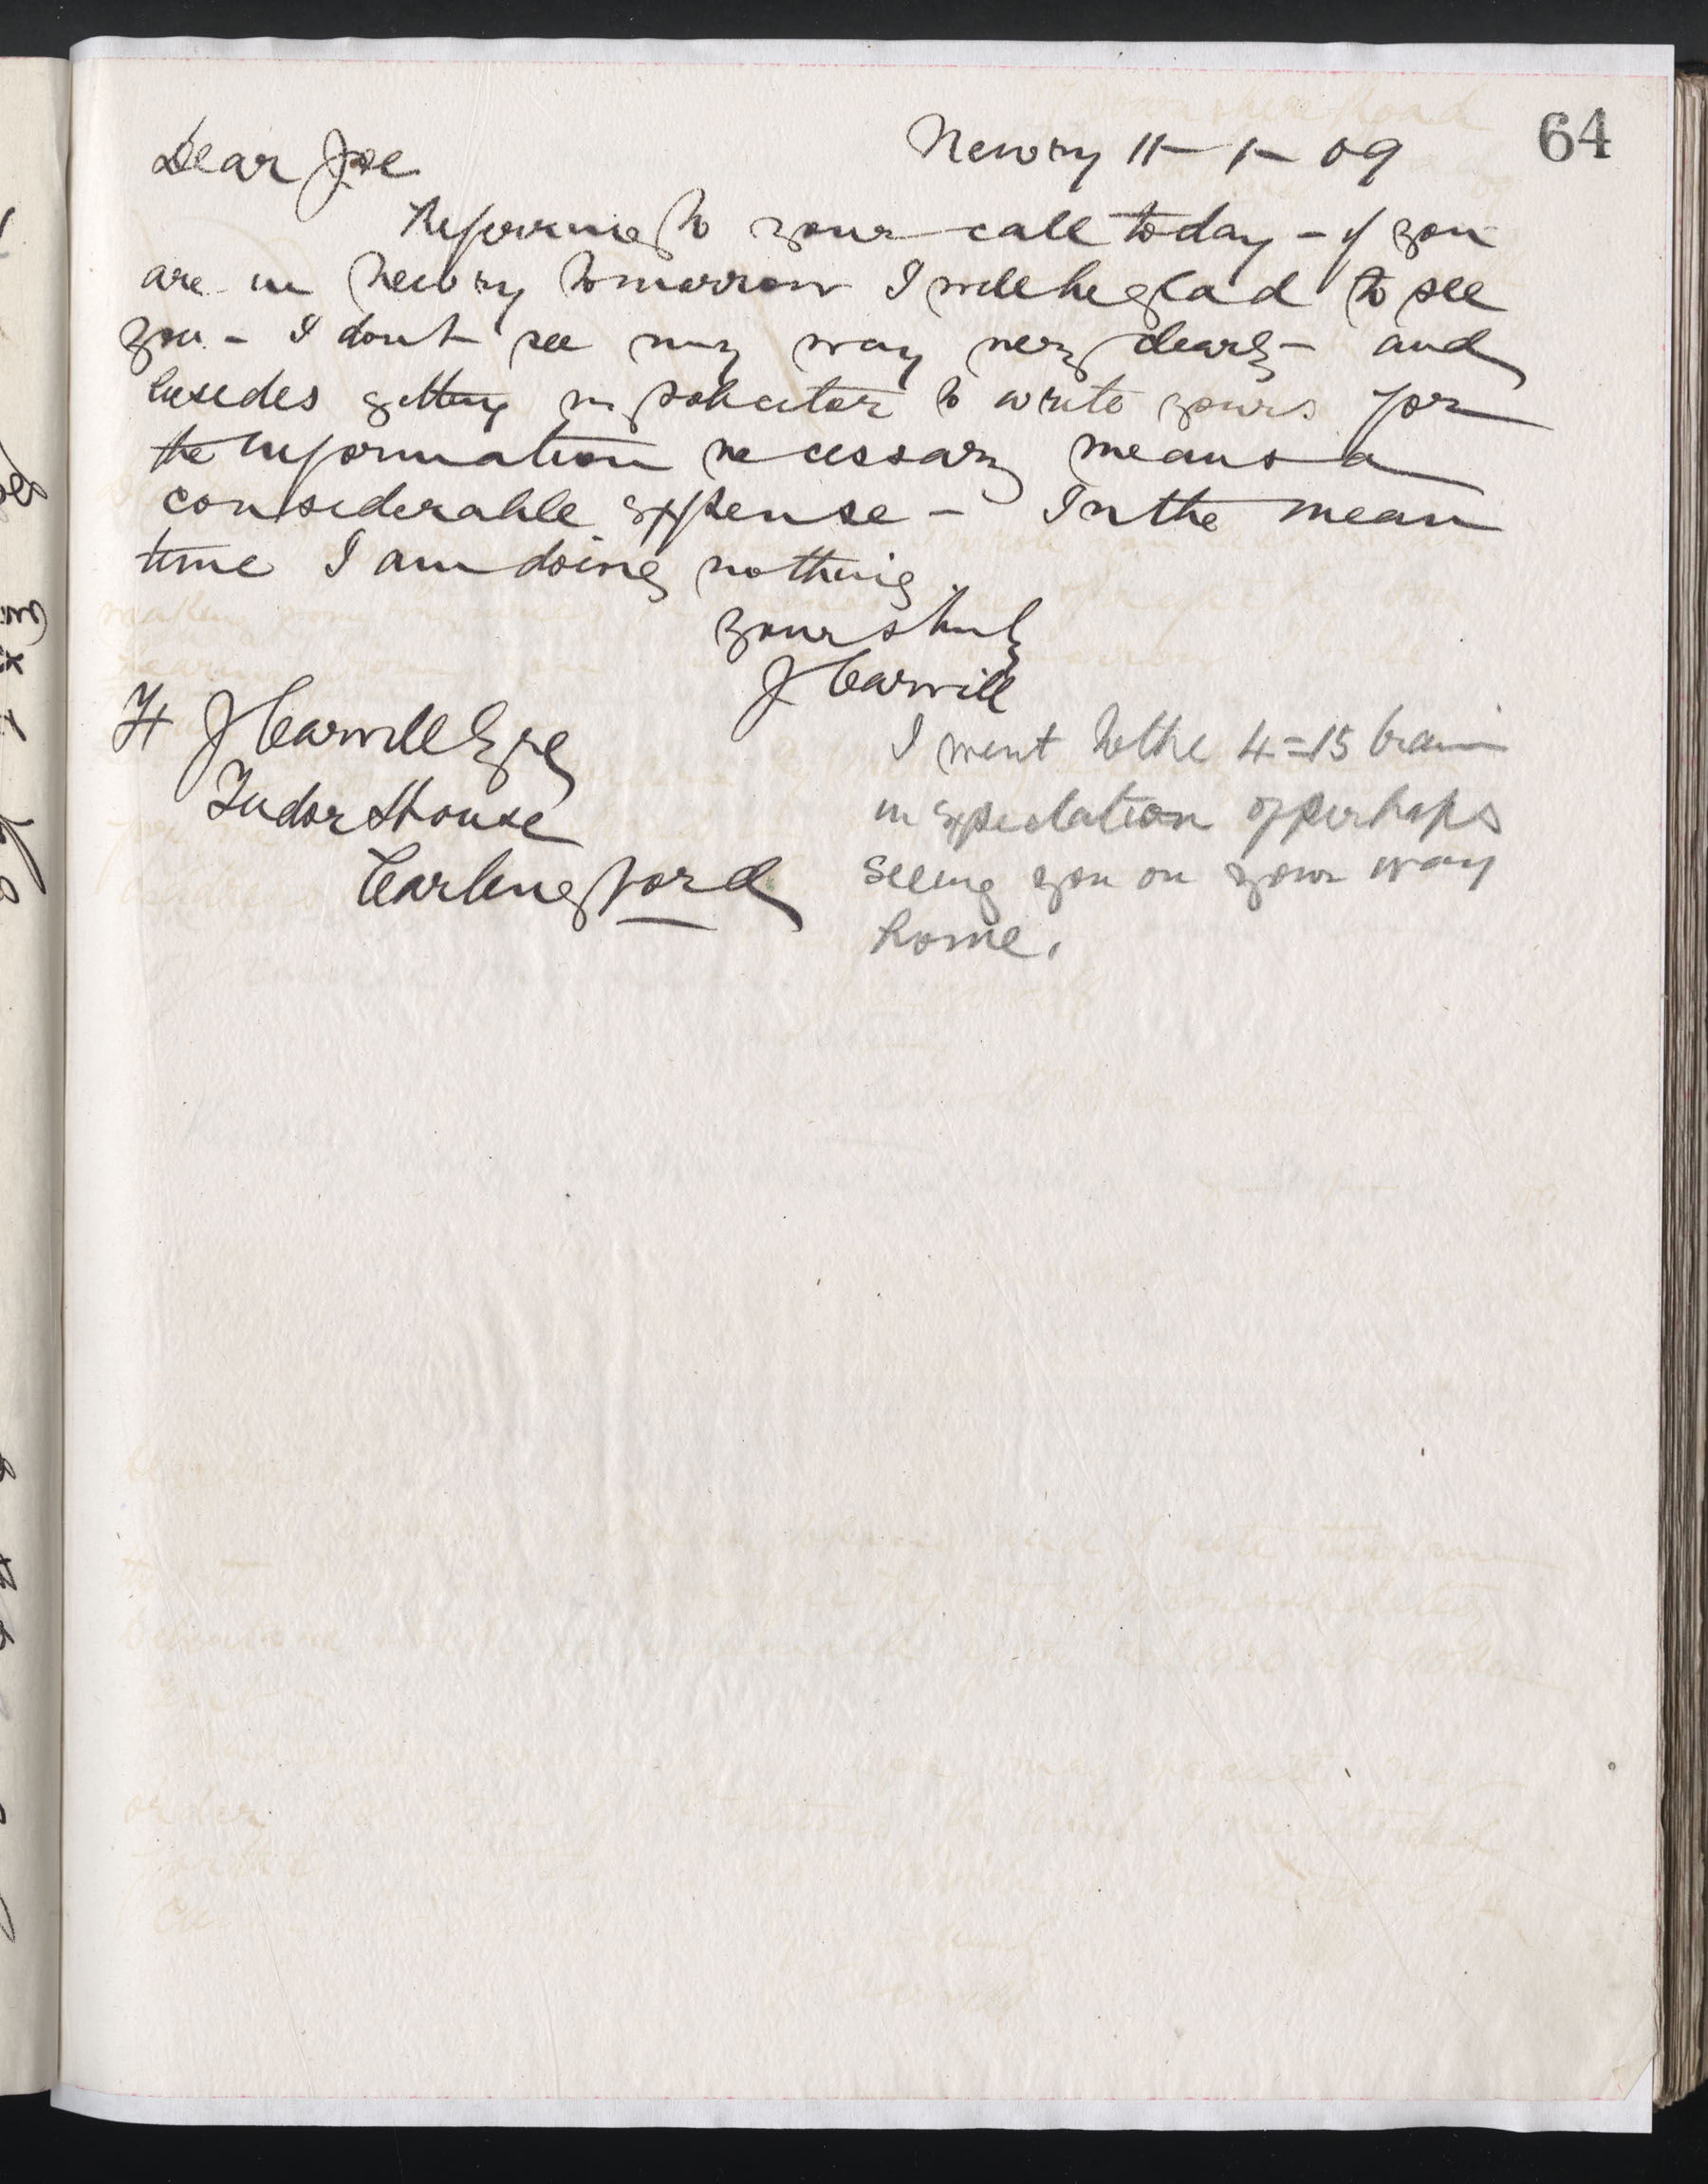 64
Newry 11 - 1 - 09
Dear Joe
Referring to your call today - if you
are in Newry tomorrow I will be glad to see
you - I dont see my way very clearly - and
besides getting my solicitor to write yours for
the information necessary means a
considerable expense - In the mean
time I am doing nothing.
Yours truly
J Carvill
J Carvill Esqe
Tudor House
Carlingford
I went to the 4=15 train
in expectation of perhaps
seeing you on your way
home.